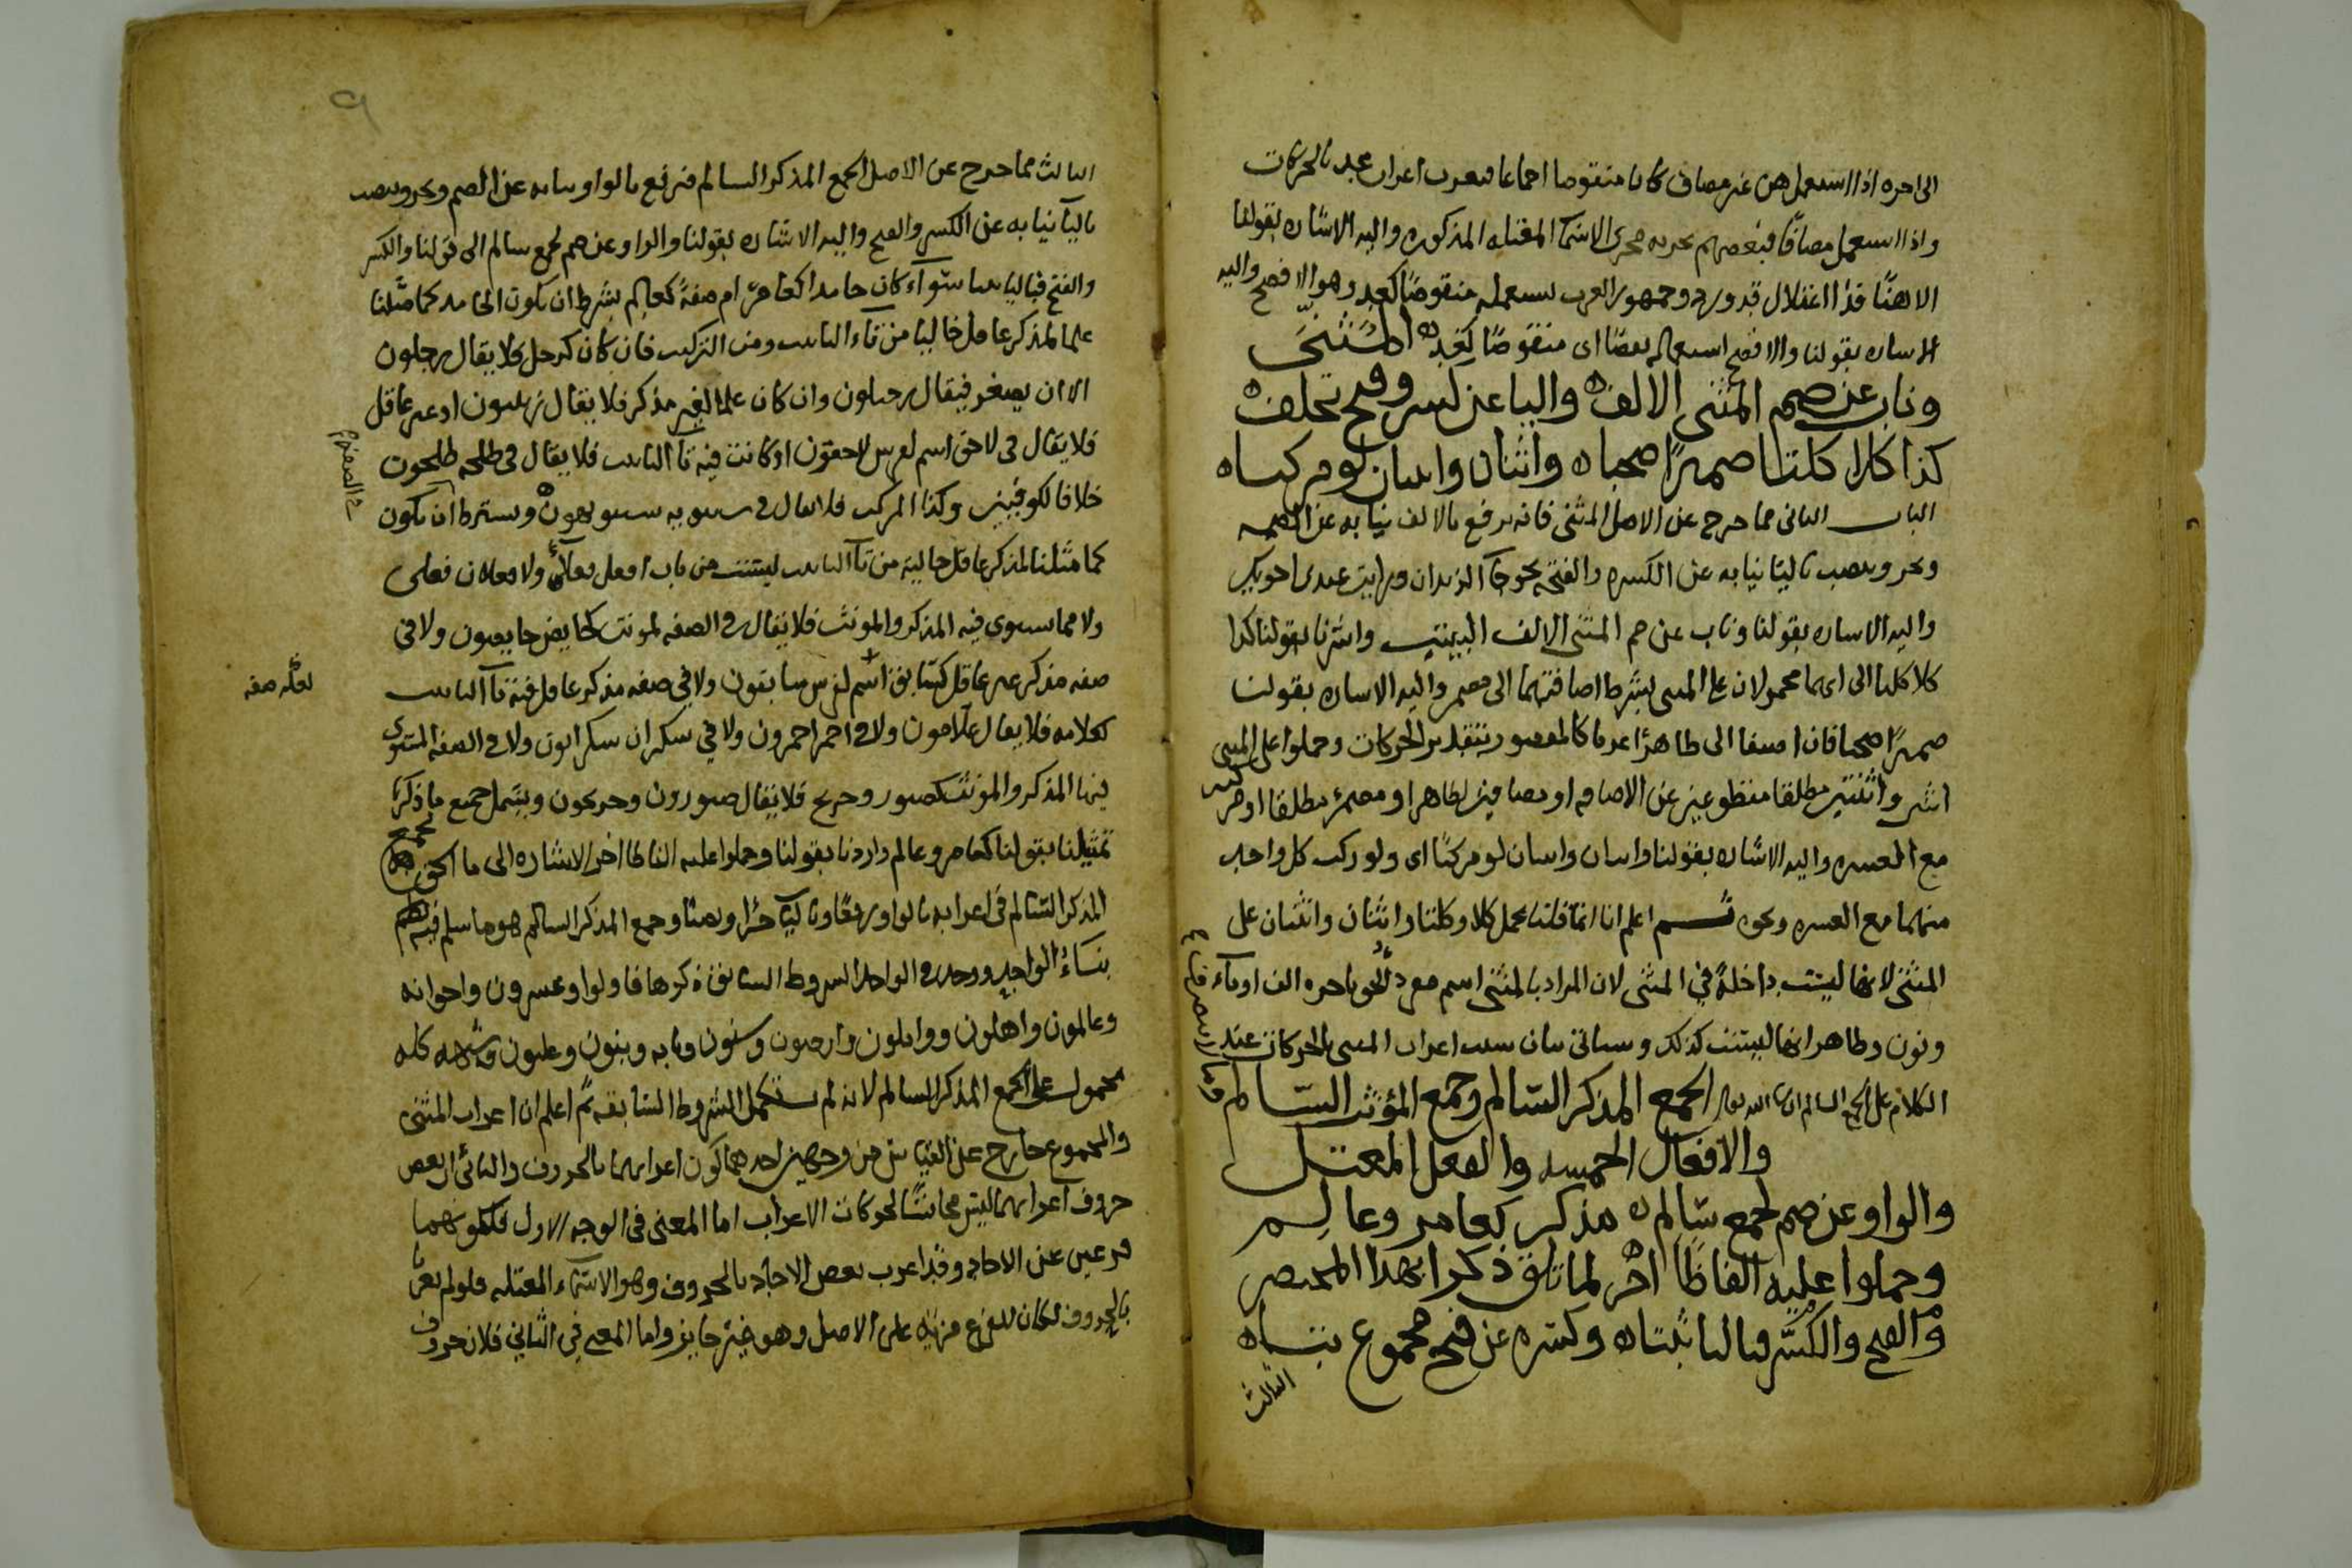 الى اخره اذا استعمل هن غير مضاف كان منقوصا اجماعا فيعرب اعراب غد بالحركات
واذا استعمل مضافا فبعضهم يجريه مجرى الاسماء المعتله المذكوره واليه الاشاره بقولنا
الا هنا وجمهور العرب يستعمله منقوصا كغد وهو الافصح واليه
الاشاره بقولنا والافصح استعماله نقصا اى منقوصا كغد المثنى
وناب عن ضم المثنى الالف واليا عن كسر وفتح تخلف
كذا كلا كلتا ضميرا صحباه واثنان واثنتان لو مركباه
الباب الثانى مما خرج عن الاصل المثنى فانه يرفع بالالف نيابه عن الضمه
ويجر وينصب باليا نيابه عن الكسره والفتحه نحو جا الزيدان ورايت عبدى اخويك
واليه الاشاره بقولنا وناب عن ضم المثنى الالف البيتين واشرنا بقولنا كذا
كلا كلتا الى انهما محمولان على المثنى بشرط اضافتهما الى مضمر واليه الاشاره بقولنا
ضميرا صحبا فان اضيفا الى ظاهر اعربا كالمقصور بتقدير الحركات وحملوا على المثنى
اثنين واثنتين مطلقا مقطوعين عن الاضافه او مضافين لظاهر او مضمر مطلقا او مركبين
مع العشره واليه الاشاره بقولنا واثنان واثنتان لو مركبا اى ولو ركب كل واحد
منهما مع العشره ونحوه ثم اعلم انا انما قلنا بحمل كلا وكلتا واثنان واثنتان على
المثنى لانها ليست داخلة فى المثنى لان المراد بالمثنى اسم مفرد الحق باخره الف او ياء
ونون وظاهر انها ليست كذلك وسياتى بيان سبب اعراب المثنى بالحركات عند
الكلام على الجمع السالم ان شا الله تعالى الجمع المذكر السالم وجمع المؤنث السالم
والافعال الخمسه والفعل المعتل
والواو عن ضم لجمع سالم مذكر كعامر وعالم
وحملوا عليه الفاظا اخر لما تلق ذكرا بهذا المختصر
والفتح والكسر فباليا ثبتاه وكسره عن فتح مجموع بتاه
الثالث
الثالث مما خرج عن الاصل الجمع المذكر السالم فيرفع بالواو نيابه عن الضم ويجر وينصب
باليا نيابه عن الكسر والفتح واليه الاشاره بقولنا والواو عن ضم لجمع سالم الى قولنا والكسر
والفتح فباليا ثبتا سواء كان جامدا كعامر ام صفة كعالم بشرط ان يكون الجامد كما مثلنا
علما لمذكر عاقل خاليا من تاء التانيث ومن التركيب فان كان كرجل فلا يقال رجلون
الا ان يصغر فيقال رجيلون وان كان علما لغير مذكر فلا يقال زينبون او غير عاقل
فلا يقال فى لاحق اسم لفرس لاحقون او كانت فيه تا التانيث فلا يقال فى طلحه طلحون
خلافا لكوفيين وكذا المركب فلا يقال فى سيبويه سيبويهون ويشترط ان تكون
كما مثلنا لمذكر عاقل خاليه من تا التانيث ليست من باب افعل فعلاء ولا فعلان فعلى
ولا مما يستوى فيه المذكر والمونث فلا يقال فى الصفه لمونث كحايض حايضون ولا فى
صفه مذكر غير عاقل كسابق اسم لفرس سابقون ولا فى صفه مذكر عاقل فيه تا التانيث
كعلامه فلا يقال علامون ولا فى احمر احمرون ولا فى سكران سكرانون ولا فى الصفه المستوى
فيها المذكر والمونث كصبور وجريح فلا يقال صبورون وجريحون ويشمل جميع ما ذكرنا
تمثيلنا بقولنا كعامر وعالم واردنا بقولنا وحملوا عليه الفاظا اخر الاشاره الى ما الحق بجمع
المذكر السالم فى اعرابه بالواو رفعا وباليا جرا ونصبا وجمع المذكر السالم هو ما سلم فيه نظم
بناء الواحد ووجدت فى الواحد الشروط السابق ذكرها فاولوا وعشرون واخواته
وعالمون واهلون ووابلون وارضون وسنون وبابه وبنون وعليون وشبهه كله
محمول على الجمع المذكر السالم لانه لم يستكمل الشروط السابقه ثم اعلم ان اعراب المثنى
والمجموع خارج عن القياس من وجهين احدهما كون اعرابهما بالحروف والثانى ان بعض
حروف اعرابهما ليس مجانسا لحركات الاعراب اما المعنى فى الوجه الاول فلكونهما
فرعين عن الاحاد وقد اعرب بعض الاحاد بالحروف وهو الاسماء المعتله فلو لم يعربا
بالحروف لكان للفرع مزيه على الاصل وهو غير جايز واما المعنى فى الثانى فلان حروف